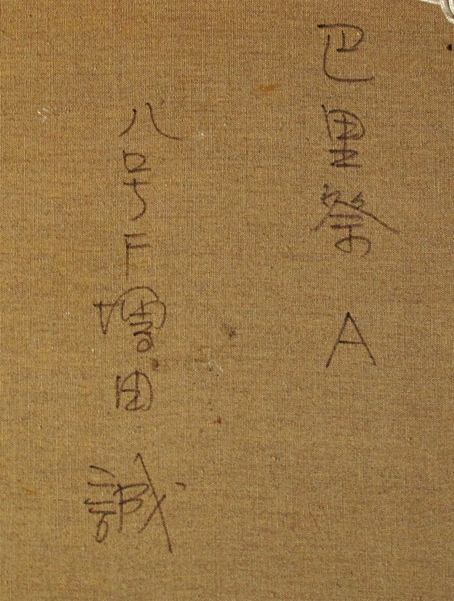 巴里祭 A
八号F 増田 誠